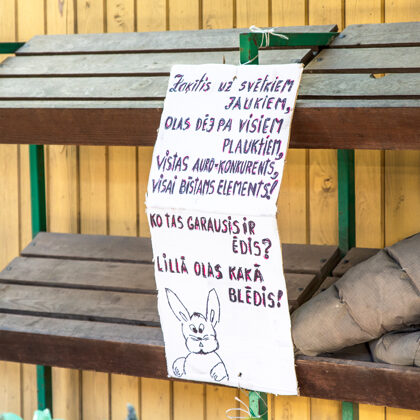 Zaķītis uz svētkiem
jaukiem,
olas dēj pa visiem
plauktiem,
vistas auro-konkurents,
visai bīstams elements!
Ko tas garausis ir
ēdis?
Lillā olas kakā
blēdis!